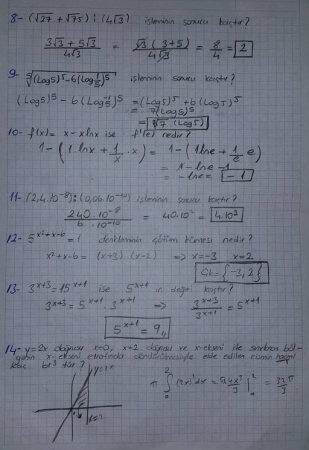 8- (√27 + √75) : (4√3) işleminin sonucu kaçtır?
(3√3 + 5√3) / 4√3 = √3 (3+5) / 4√3 = 8/4 = 2
9- işleminin sonucu kaçtır?
(Log5)⁵ - 6(Log5⁻¹)⁵ = (Log5)⁵ + 6(Log5)⁵
= 7(Log5)⁵
10- f(x) = x - xlnx ise f'(e) nedir?
1 - (1·lnx + 1/x · x) = 1 - (1lne + 1/e e)
= 1 - lne - 1
- lne = -1
11- (2,4.10⁻⁸) : (0,06.10⁻¹⁰) işleminin sonucu kaçtır?
240.10⁻⁸ / 6.10⁻¹⁰ = 40.10² = 4.10³
12- 5^(x²+x-6) = 1 denkleminin çözüm kümesi nedir?
x²+x-6 = (x+3) (x-2) => x=-3 x=2
Çk={-3,2}
13- 3^(x+3) = 15^(x+1) ise 5^(x+1) in değeri kaçtır?
3^(x+3) = 5^(x+1) . 3^(x+1) => 3^(x+3) / 3^(x+1) = 5^(x+1)
5^(x+1) = 9
14- y=2x doğrusu x=0, x=2 doğrusu ve x-ekseni ile sınırlanan böl-
genin x-ekseni etrafında döndürülmesiyle elde edilen cismin hacmi
kaç br³ tür?
π ∫₀² (2x)² dx = π 4x³/3 |₀² = 32/3 π
y=2x
x=2